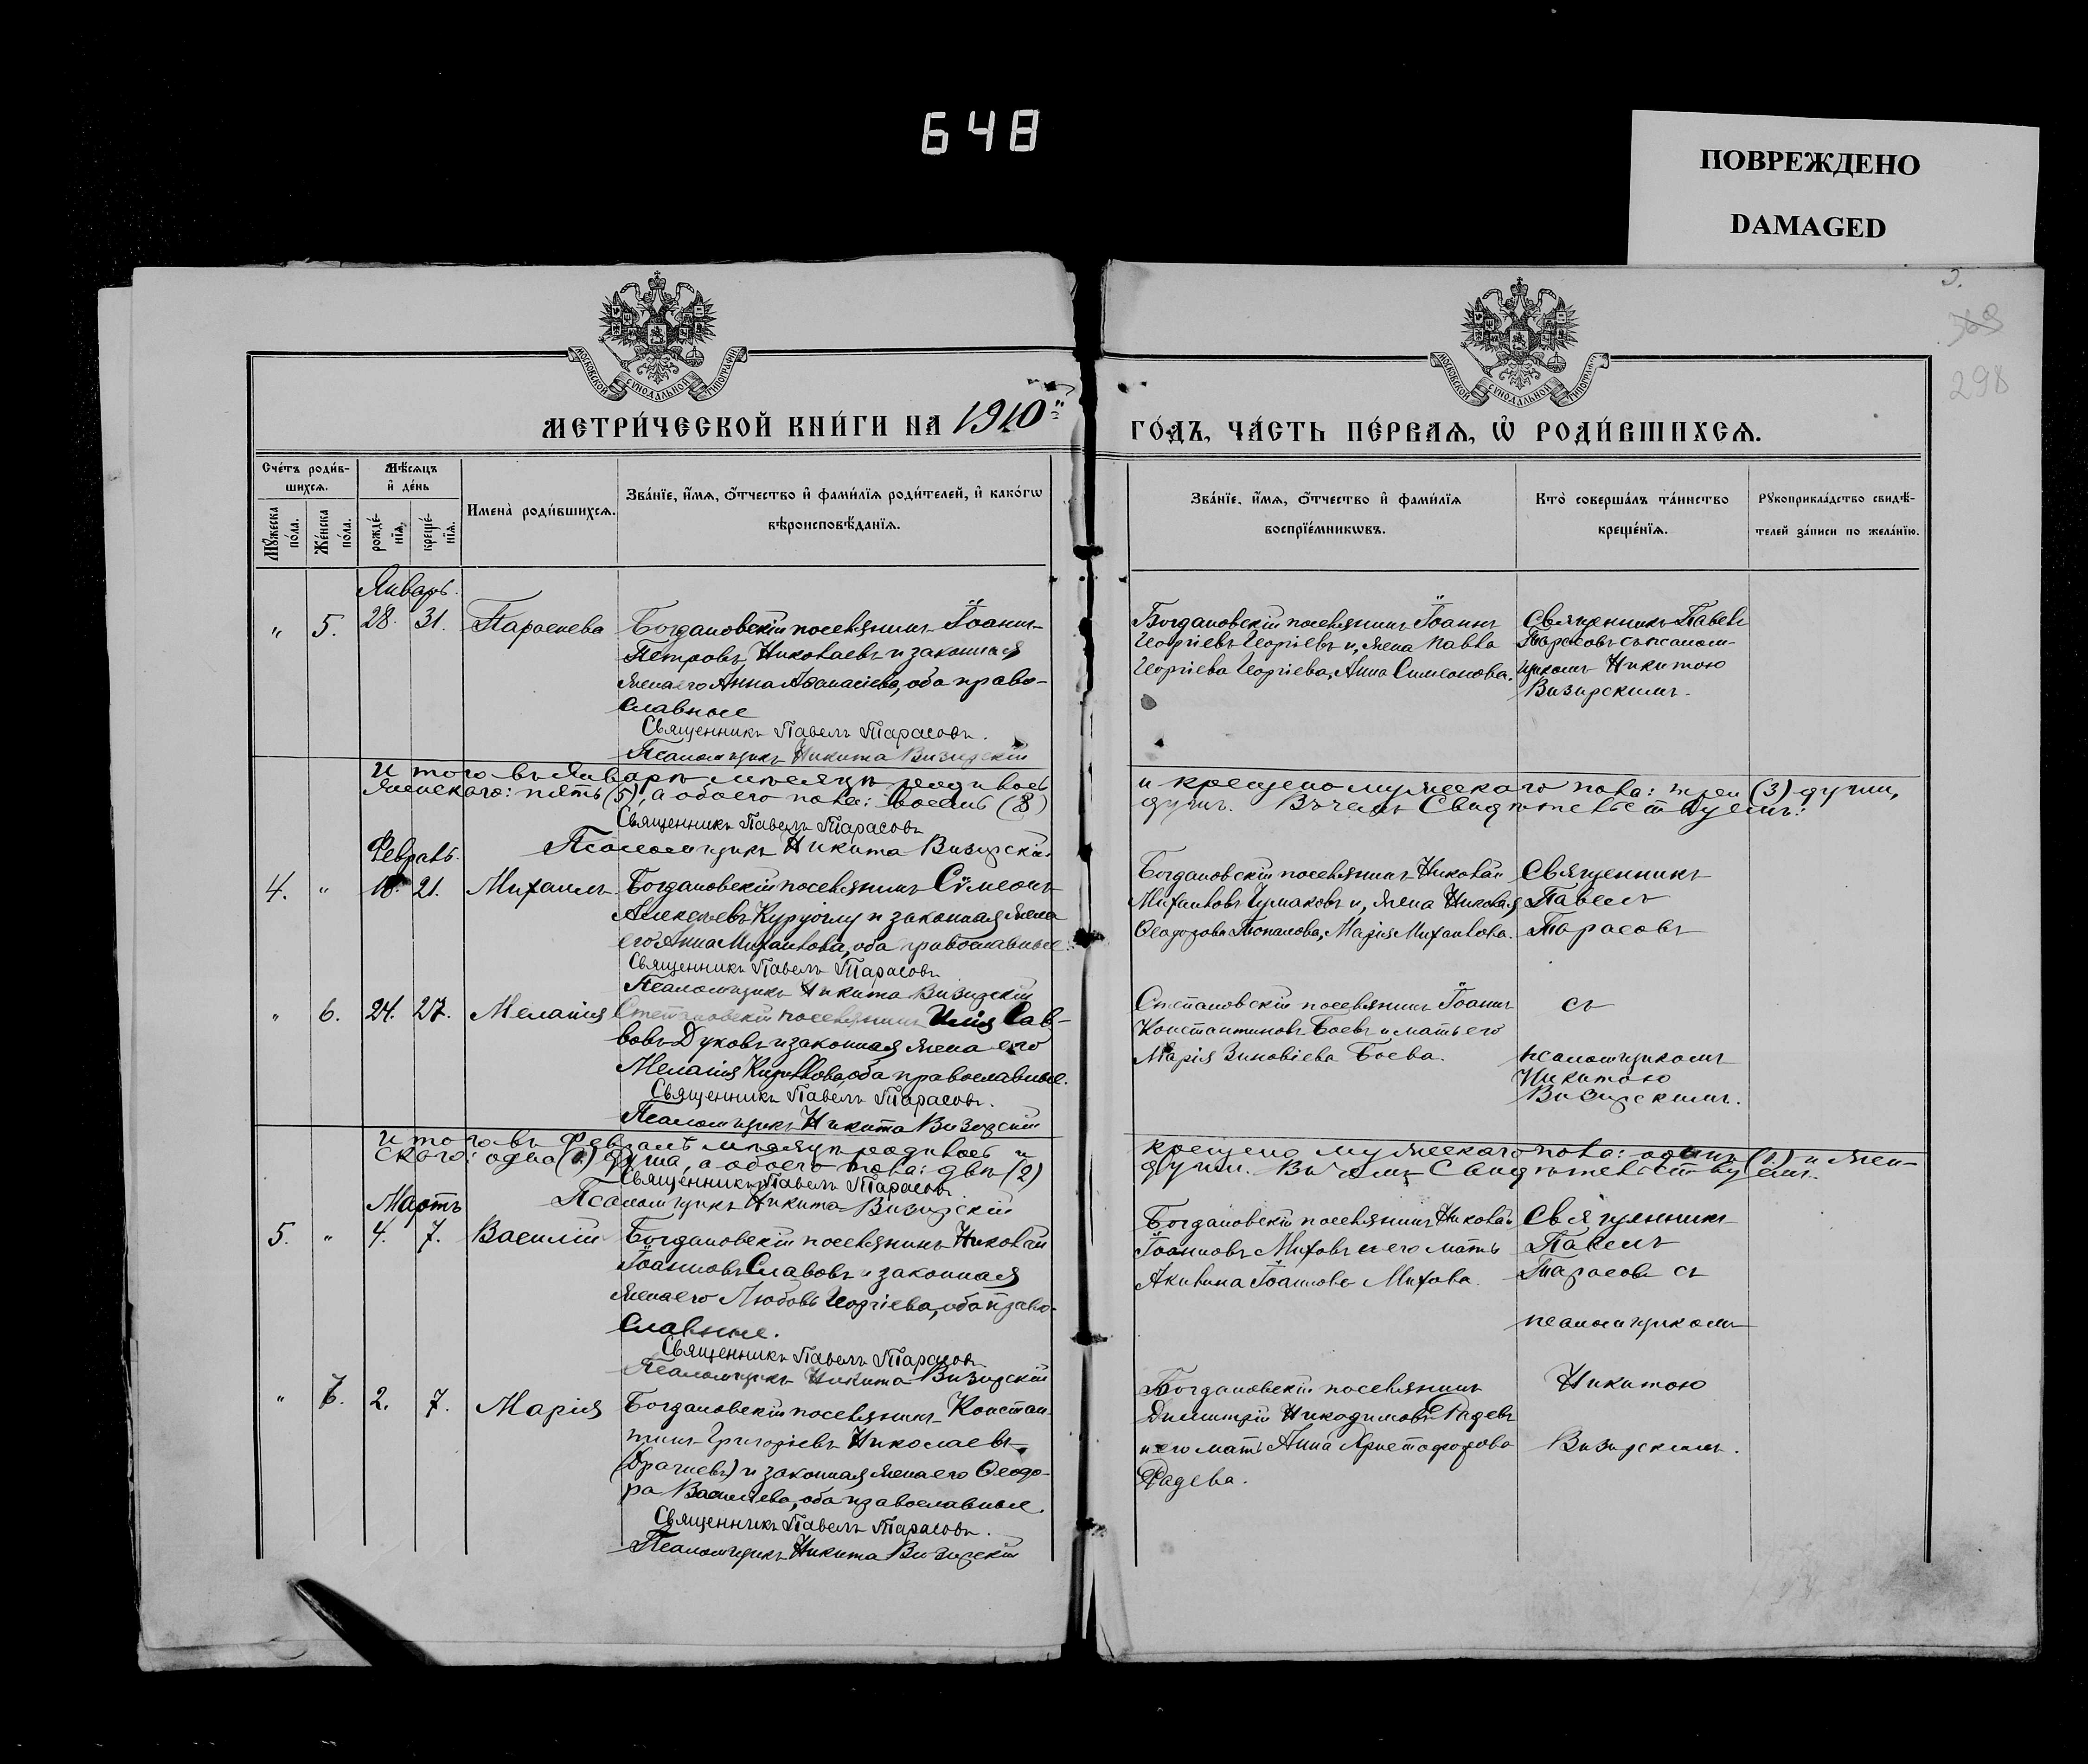 648
ПОВРЕЖДЕНО
DAMAGED
298
МОСКОВСКОЙ СѴНОДАЛЬНОЙ ТИПОГРАФІИ
МОСКОВСКОЙ СѴНОДАЛЬНОЙ ТИПОГРАФІИ
МЕТРИ́ЧЕСКОЙ КНИ́ГИ НА 1910
ГО́ДЪ, ЧА́СТЬ ПЕ́РВАѦ, Ѡ҆ РОДИ́ВШИХСѦ.
Сче́тъ роди́в-
шихсѧ.
Мѣ́сѧцъ
и҆ де́нь
Мꙋ́жеска по́ла.
Же́нска по́ла.
рожде́-нїѧ.
креще́-нїѧ.
Имена̀ роди́вшихсѧ.
Зва́нїе, и҆́мѧ, ѻ҆́тчество и҆ фами́лїѧ роди́телей, и҆ како́гѡ
вѣроисповѣ́данїѧ.
Зва́нїе, и҆́мѧ, ѻ҆́тчество и҆ фами́лїѧ
воспрїе́мникѡвъ.
Кто̀ соверша́лъ та́инство
креще́нїѧ.
Рꙋкоприкла́дство свидѣ́-
телей за́писи по жела́нїю.
Январь.
" 5. 28. 31. Параскева
Богдановскій поселянинъ Іоаннъ
Петровъ Николаевъ и законная
жена его Анна Аѳанасіева, оба право-
славные
Священникъ Павелъ Тарасовъ.
Псаломщикъ Никита Визирскій
Богдановскій поселянинъ Іоаннъ
Георгіевъ Георгіевъ и, жена Павла
Георгіева Георгіева, Анна Симеонова.
Священникъ Павелъ
Тарасовъ съ псалом-
щикомъ Никитою
Визирскимъ.
Итого въ Январѣ мѣсяцѣ родилось
и крещено мужескаго пола: три (3) души,
женскаго: пять (5), а обоего пола: восемь (8)
душъ. Въ чемъ Свидѣтельствуемъ:
Священникъ Павелъ Тарасовъ
Псаломщикъ Никита Визирскій
Февраль.
4. " 18. 21. Михаилъ
Богдановскій поселянинъ Сѵмеонъ
Алексѣевъ Куруоглу и законная жена
его Анна Михаилова, оба православные
Священникъ Павелъ Тарасовъ
Псаломщикъ Никита Визирскій
Богдановскій поселянинъ Николай
Михаиловъ Чумаковъ и, жена Николая
Ѳеодорова Топалова, Марія Михаилова.
Священникъ
Павелъ
Тарасовъ
" 6. 24. 27. Меланія
Степановскій поселянинъ Илія Сав-
вовъ Дуковъ и законная жена его
Меланія Кириллова, оба православные.
Священникъ Павелъ Тарасовъ.
Псаломщикъ Никита Визирскій
Степановскій поселянинъ Іоаннъ
Константиновъ Боевъ и мать его
Марія Зиновіева Боева.
съ
псаломщикомъ
Никитою
Визирскимъ.
Итого въ Февралѣ мѣсяцѣ родилось и
крещено мужескаго пола: одинъ (1) и жен-
скаго: одна (1) душа, а обоего пола: двѣ (2)
души. Въ чемъ Свидѣтельствуемъ.
Священникъ Павелъ Тарасовъ
Псаломщикъ Никита Визирскій
Мартъ
5. " 4. 7. Василій
Богдановскій поселянинъ Николай
Іоанновъ Славовъ и законная
жена его Любовь Георгіева, оба право-
славные.
Священникъ Павелъ Тарасовъ
Псаломщикъ Никита Визирскій
Богдановскій поселянинъ Николай
Іоанновъ Миховъ и его мать
Акилина Іоаннова Михова.
Священникъ
Павелъ
Тарасовъ съ
псаломщикомъ
" 7. 2. 7. Марія
Богдановскій поселянинъ Констан-
тинъ Григоріевъ Николаевъ
(Драгневъ) и законная жена его Ѳеодо-
ра Василіева, оба православные.
Священникъ Павелъ Тарасовъ.
Псаломщикъ Никита Визирскій
Богдановскій поселянинъ
Димитрій Никодимовъ Радевъ
и его мать Анна Христофорова
Радева.
Никитою
Визирскимъ.